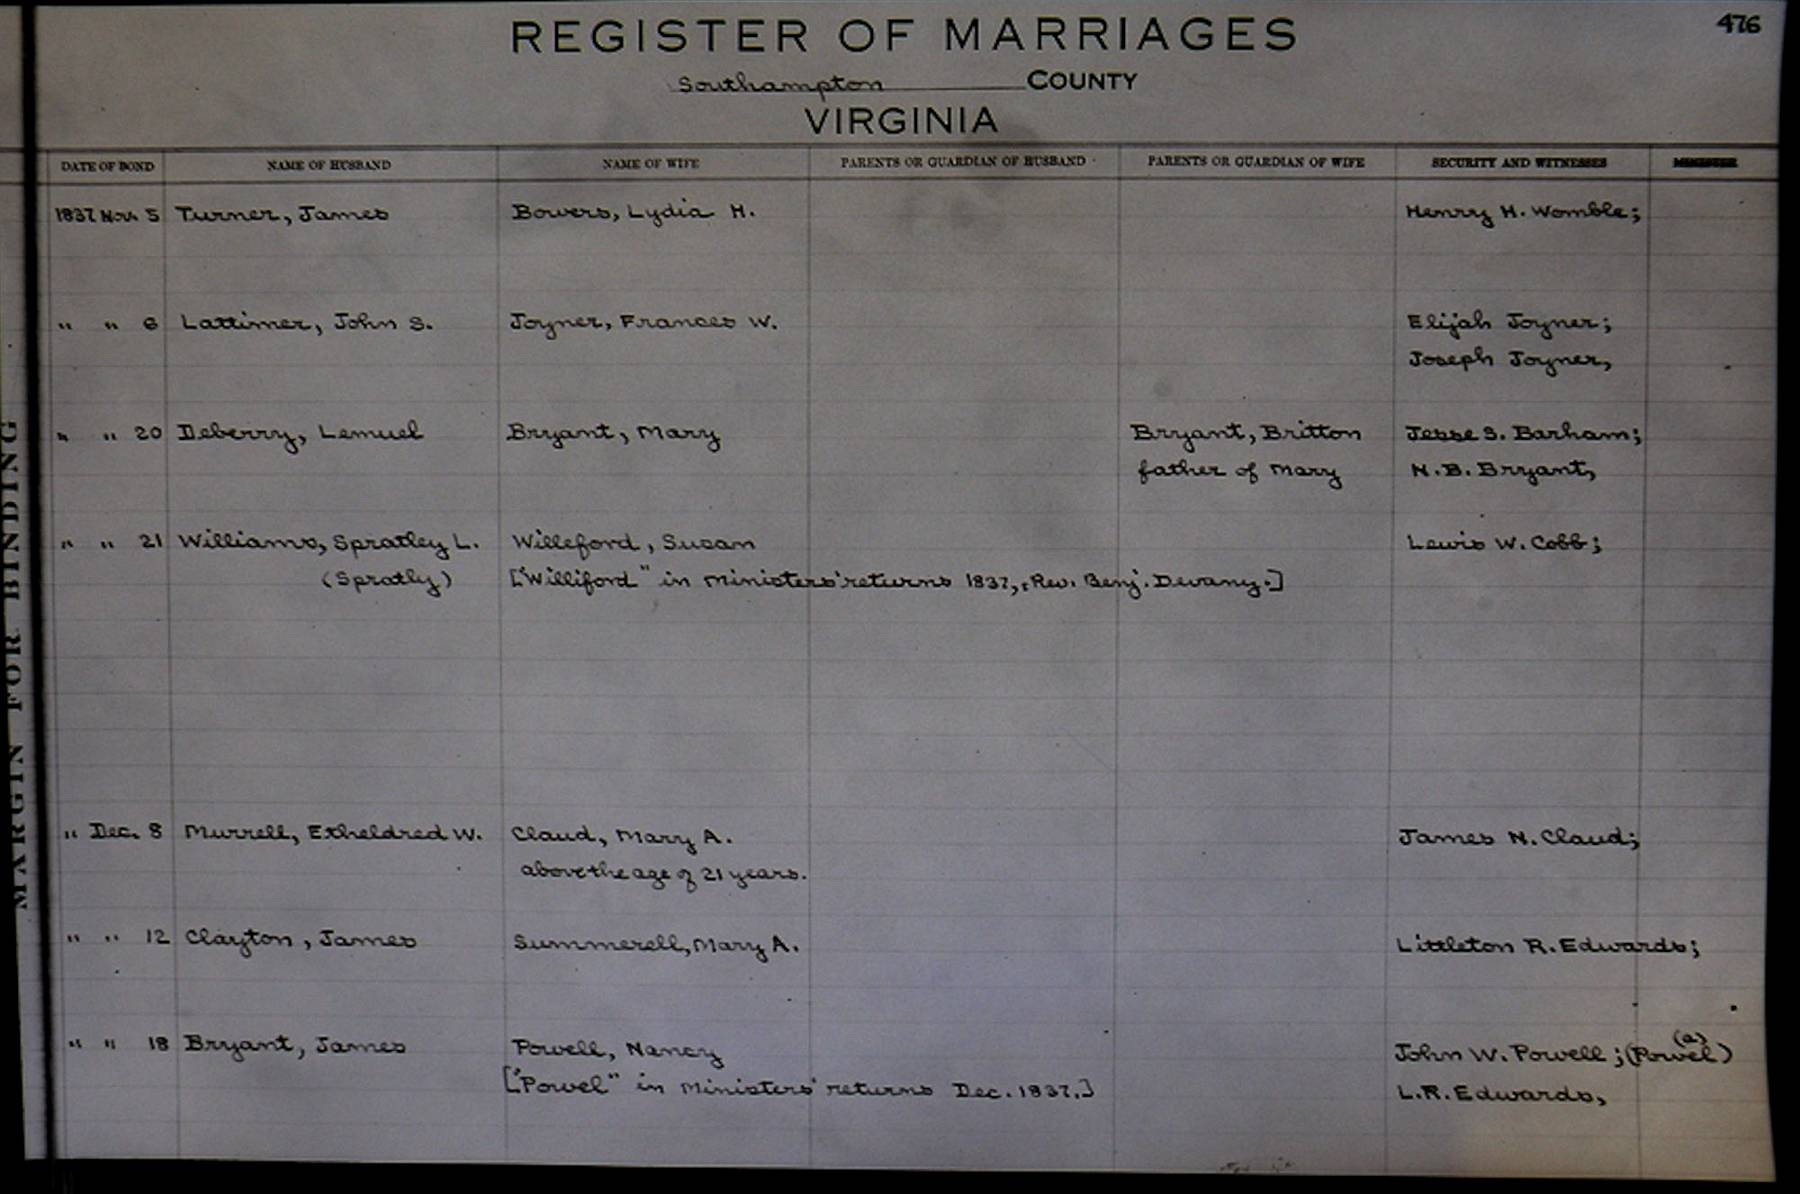 476
REGISTER OF MARRIAGES
Southampton COUNTY
VIRGINIA
DATE OF BOND NAME OF HUSBAND NAME OF WIFE PARENTS OR GUARDIAN OF HUSBAND PARENTS OR GUARDIAN OF WIFE SECURITY AND WITNESSES MINISTER
1837 Nov. 5 Turner, James Bowers, Lydia H. Henry H. Womble;
" " 6 Lattimer, John S. Joyner, Frances W. Elijah Joyner;
Joseph Joyner,
" " 20 Deberry, Lemuel Bryant, Mary Bryant, Britton Jesse S. Barham;
father of Mary N.B. Bryant,
" " 21 Williams, Spratley L. Willeford, Susan Lewis W. Cobb;
(Spratly) ["Williford" in Ministers' returns 1837, Rev. Benj. Devany.]
" Dec. 8 Murrell, Etheldred W. Claud, Mary A. James N. Claud;
above the age of 21 years.
" " 12 Clayton, James Summerell, Mary A. Littleton R. Edwards;
" " 18 Bryant, James Powell, Nancy John W. Powell; (Powel) (a)
["Powel" in Ministers' returns Dec. 1837.] L.R. Edwards,
MARGIN FOR BINDING